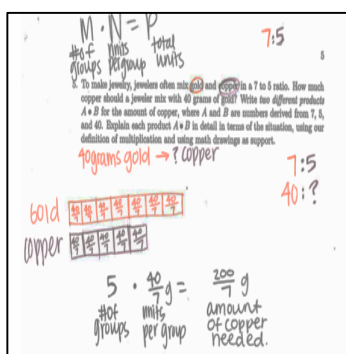 M · N = P
# of groups units per group total units
7:5
5
5. To make jewelry, jewelers often mix gold and copper in a 7 to 5 ratio. How much
copper should a jeweler mix with 40 grams of gold? Write two different products
A • B for the amount of copper, where A and B are numbers derived from 7, 5,
and 40. Explain each product A • B in detail in terms of the situation, using our
definition of multiplication and using math drawings as support.
40grams gold → ? copper
7:5
40:?
Gold 40/7 40/7 40/7 40/7 40/7 40/7 40/7
copper 40/7 40/7 40/7 40/7 40/7
5 · 40/7 g = 200/7 g
# of groups units per group amount of copper needed.